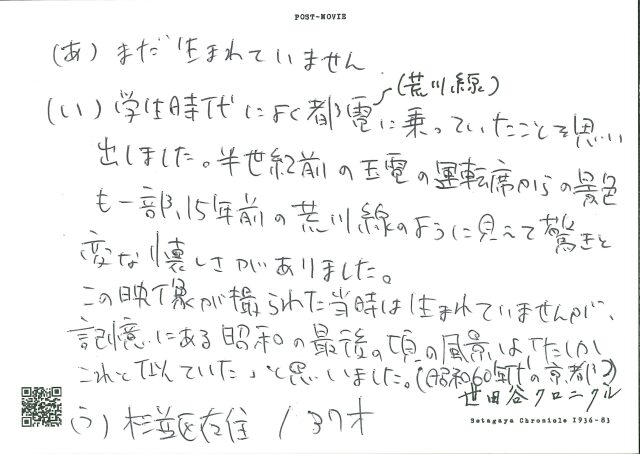 POST-MOVIE
(あ) まだ生まれていません
(い) 学生時代によく都電に乗っていたことを思い
(荒川線)
出しました。半世紀前の玉電の運転席からの景色
も一部、15年前の荒川線のように見えて驚きと
変な懐しさがありました。
この映像が撮られた当時は生まれていませんが、
記憶にある昭和の最後の頃の風景はたしか
これと似ていたなと思いました。(昭和60年代の京都)
世田谷クロニクル
Setagaya Chronicle 1936-83
う) 杉並区在住 / 37才